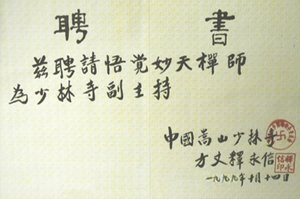 聘書
茲聘請悟覺妙天禪師
為少林寺副主持
中國嵩山少林寺
方丈釋永信
一九九九年十月十四日